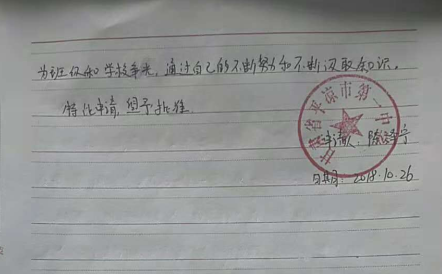 为班级和学校争光,通过自己的不断努力和不断汲取知识。
特此申请,望予批准
甘肃省平凉市第一中
申请人:陈泽宁
日期:2018.10.26